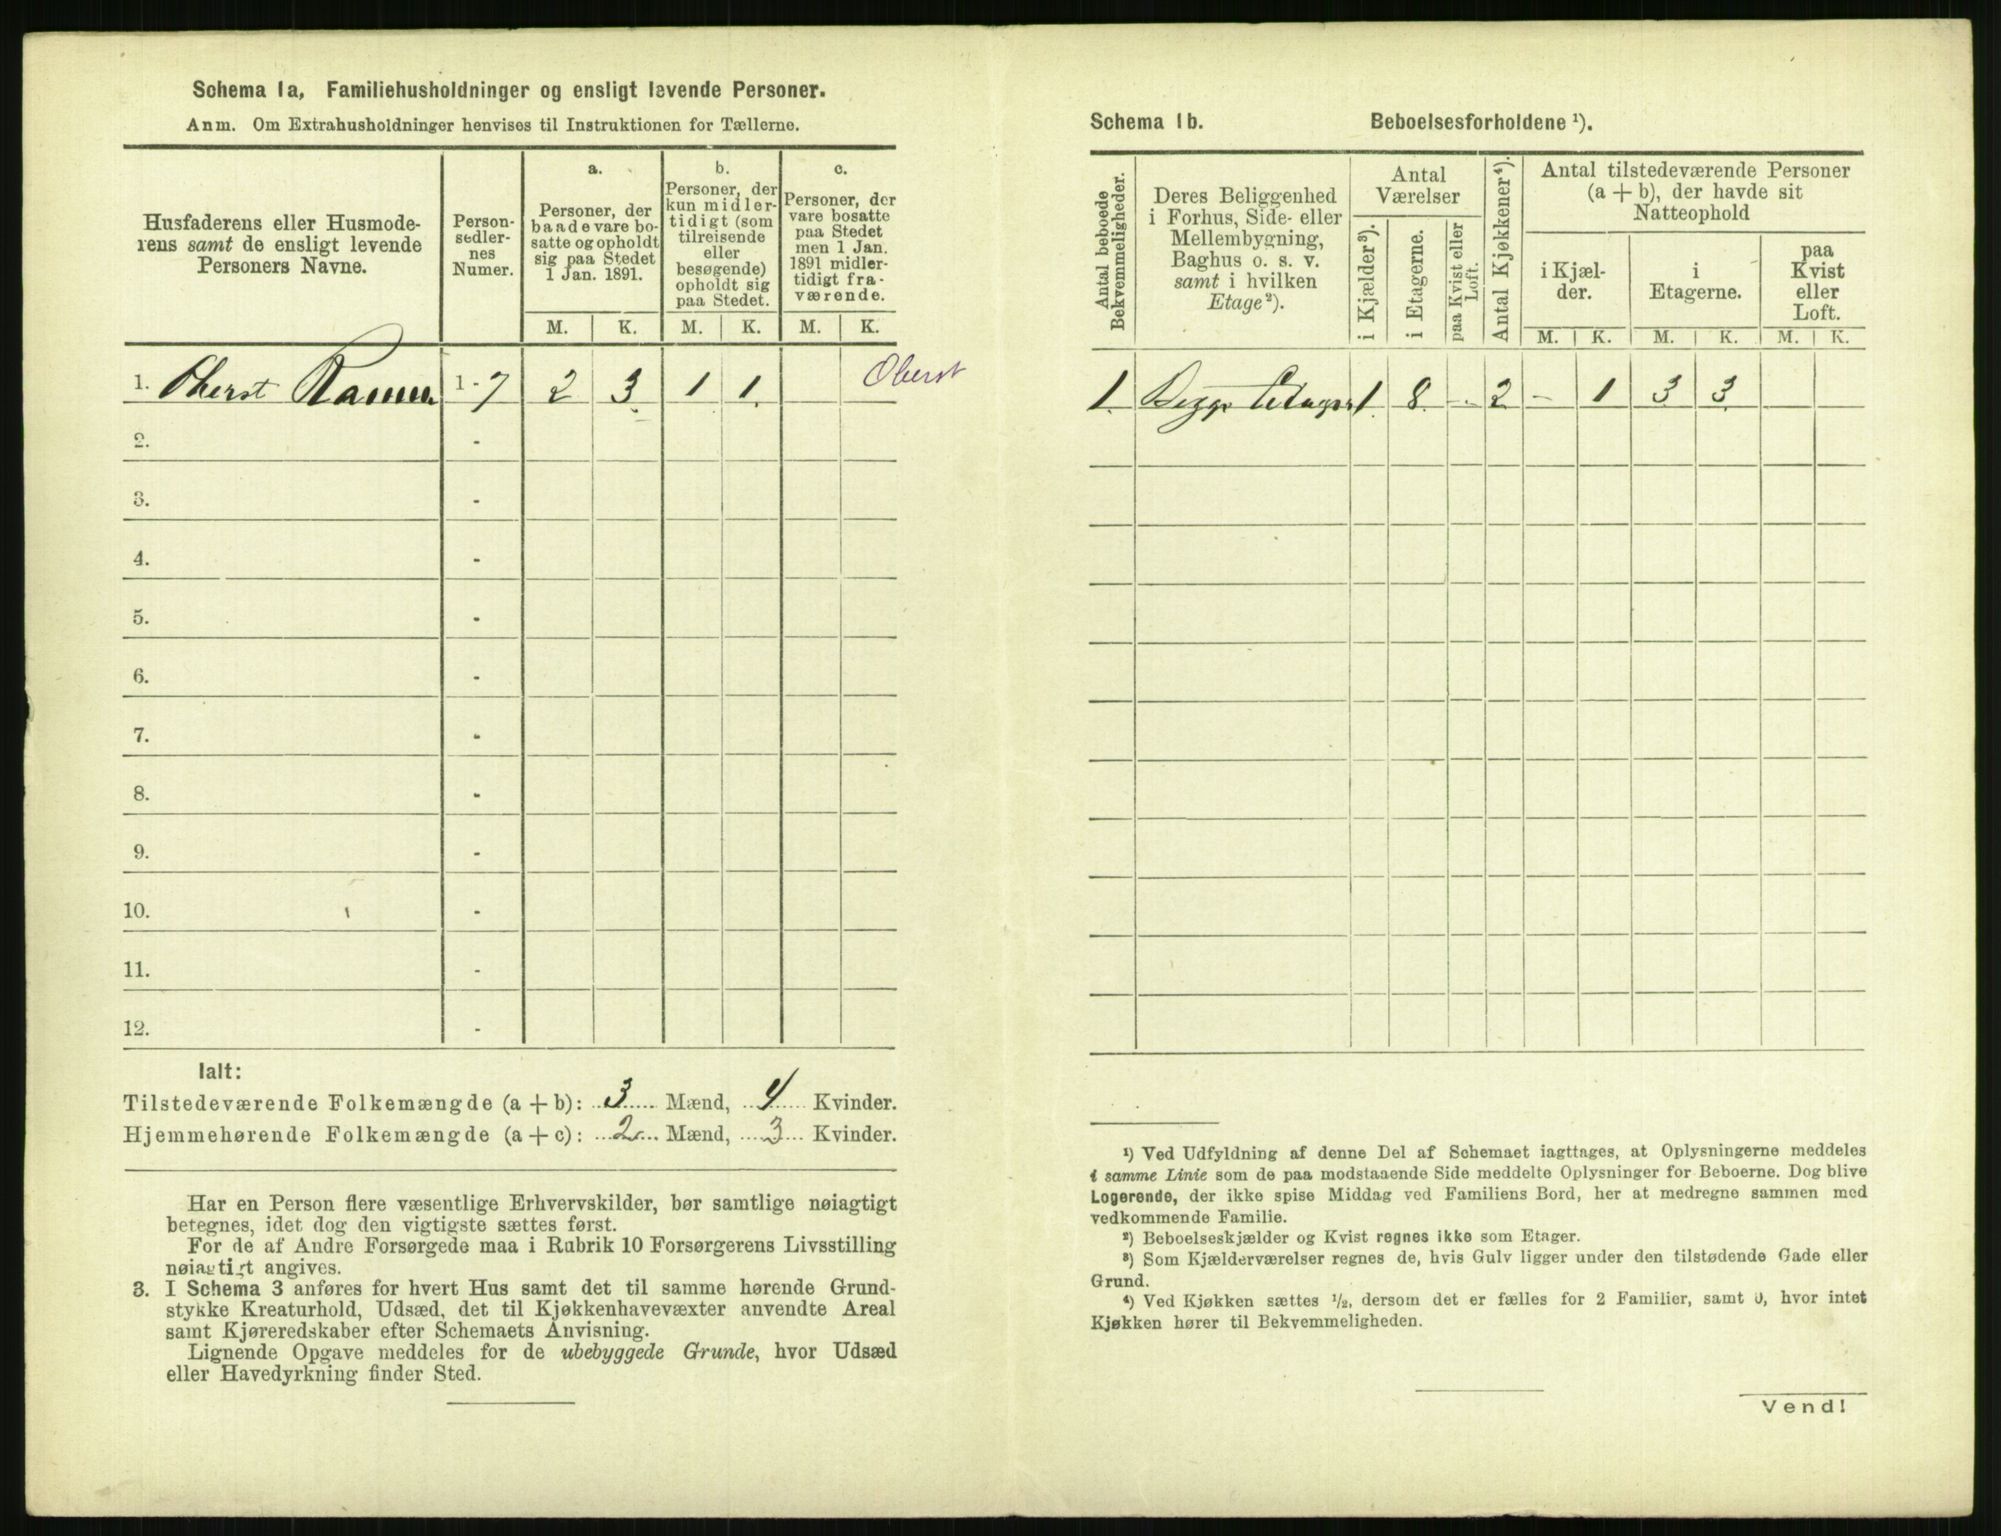 Schema 1a, Familiehusholdninger og ensligt levende Personer.
Anm. Om Extrahusholdninger henvises til Instruktionen for Tællerne.
Husfaderens eller Husmode-
rens samt de ensligt levende
Personers Navne.
Person-
sedler-
nes
Numer.
a.
Personer, der
baade vare bo-
satte og opholdt
sig paa Stedet
1 Jan. 1891.
b.
Personer, der
kun midler-
tidigt (som
tilreisende
eller
besøgende)
opholdt sig
paa Stedet.
c.
Personer, der
vare bosatte
paa Stedet
men 1 Jan.
1891 midler-
tidigt fra-
værende.
M. K. M. K. M. K.
1. Oberst 1 - 7 2 3 1 1 Oberst
2. -
3. -
4. -
5. -
6. -
7. -
8. -
9. -
10. -
11. -
12. -
Ialt:
Tilstedeværende Folkemængde (a + b): 3 Mænd, 4 Kvinder.
Hjemmehørende Folkemængde (a + c): 2 Mænd, 3 Kvinder.
Har en Person flere væsentlige Erhvervskilder, bør samtlige nøiagtigt
betegnes, idet dog den vigtigste sættes først.
For de af Andre Forsørgede maa i Rubrik 10 Forsørgerens Livsstilling
nøiagtigt angives.
3. I Schema 3 anføres for hvert Hus samt det til samme hørende Grund-
stykke Kreaturhold, Udsæd, det til Kjøkkenhavevæxter anvendte Areal
samt Kjøreredskaber efter Schemaets Anvisning.
Lignende Opgave meddeles for de ubebyggede Grunde, hvor Udsæd
eller Havedyrkning finder Sted.
Schema 1b. Beboelsesforholdene ¹).
Antal beboede
Bekvemmeligheder.
Deres Beliggenhed
i Forhus, Side- eller
Mellembygning,
Baghus o. s. v.
samt i hvilken
Etage ²).
Antal
Værelser
i Kjælder ³).
i Etagerne.
paa Kvist eller
Loft.
Antal Kjøkkener ⁴).
Antal tilstedeværende Personer
(a + b), der havde sit
Natteophold
i Kjæl-
der.
i
Etagerne.
paa
Kvist
eller
Loft.
M. K. M. K. M. K.
1. Begge Etager 1 8 - 2 - 1 3 3
¹) Ved Udfyldning af denne Del af Schemaet iagttages, at Oplysningerne meddeles
i samme Linie som de paa modstaaende Side meddelte Oplysninger for Beboerne. Dog blive
Logerende, der ikke spise Middag ved Familiens Bord, her at medregne sammen med
vedkommende Familie.
²) Beboelseskjælder og Kvist regnes ikke som Etager.
³) Som Kjælderværelser regnes de, hvis Gulv ligger under den tilstødende Gade eller
Grund.
⁴) Ved Kjøkken sættes ½, dersom det er fælles for 2 Familier, samt 0, hvor intet
Kjøkken hører til Bekvemmeligheden.
Vend!